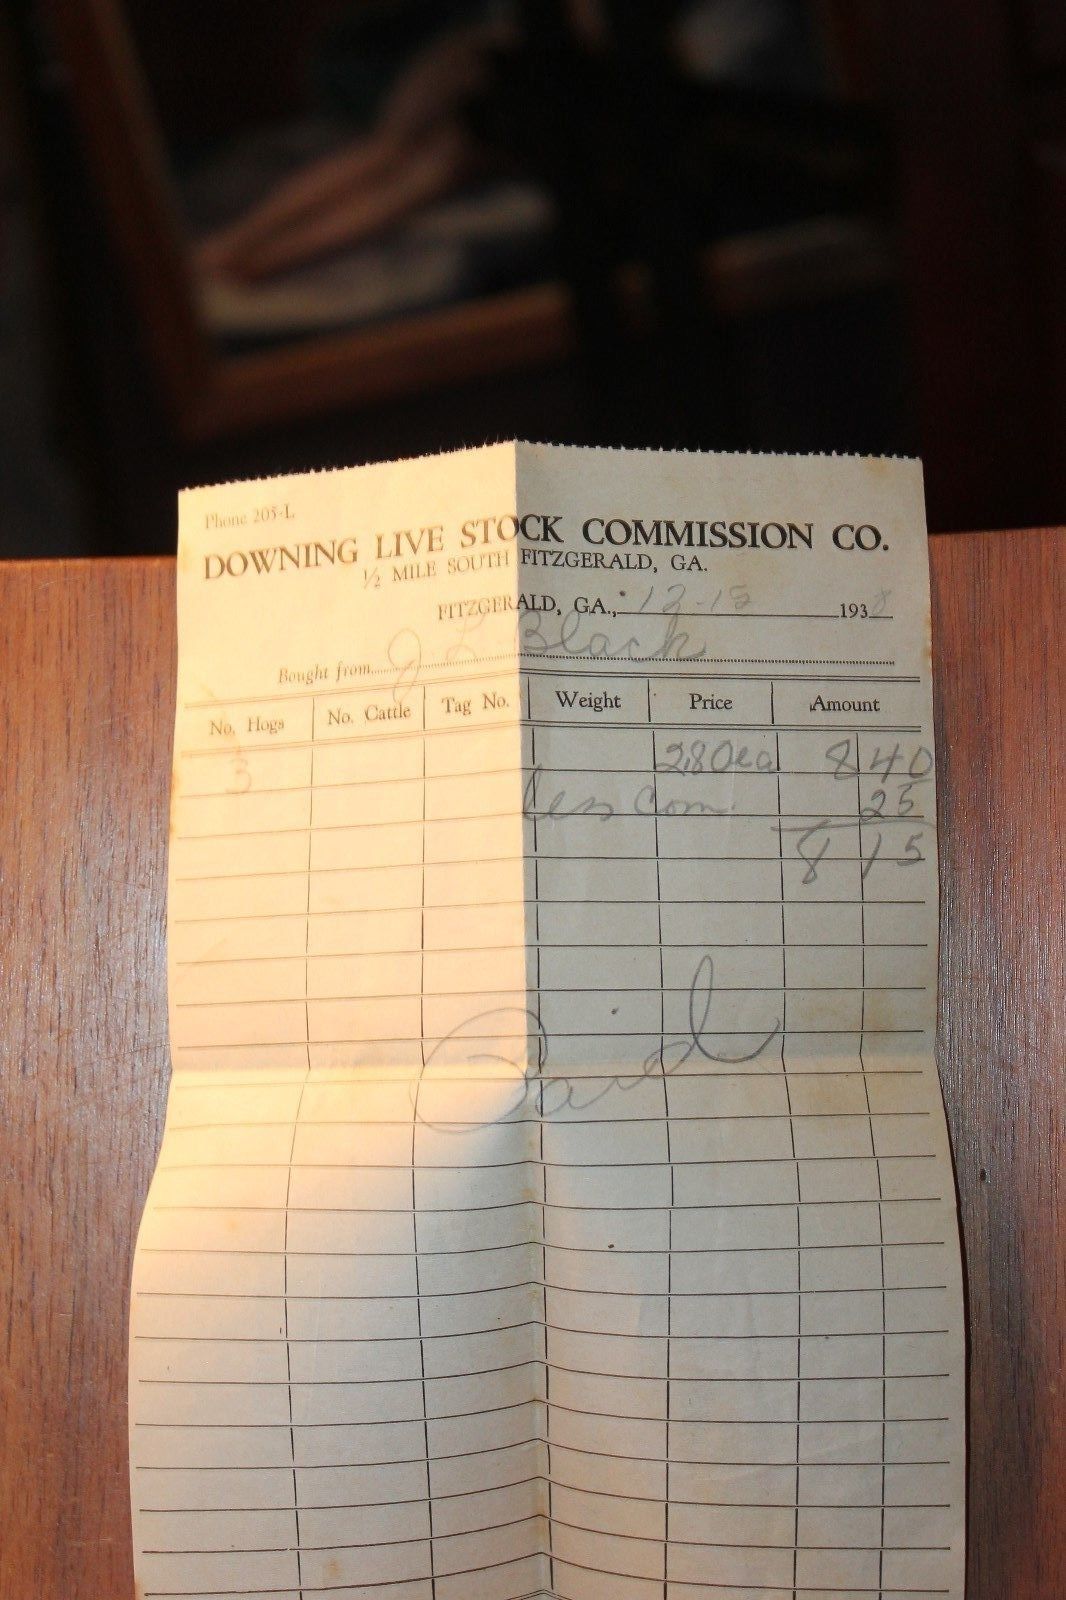 Phone 205-L
DOWNING LIVE STOCK COMMISSION CO.
½ MILE SOUTH FITZGERALD, GA.
FITZGERALD, GA., 12-15 1938
Bought from J L Black
No. Hogs No. Cattle Tag No. Weight Price Amount
3 2.80 ea 8 40
less com. 25
8 15
Paid